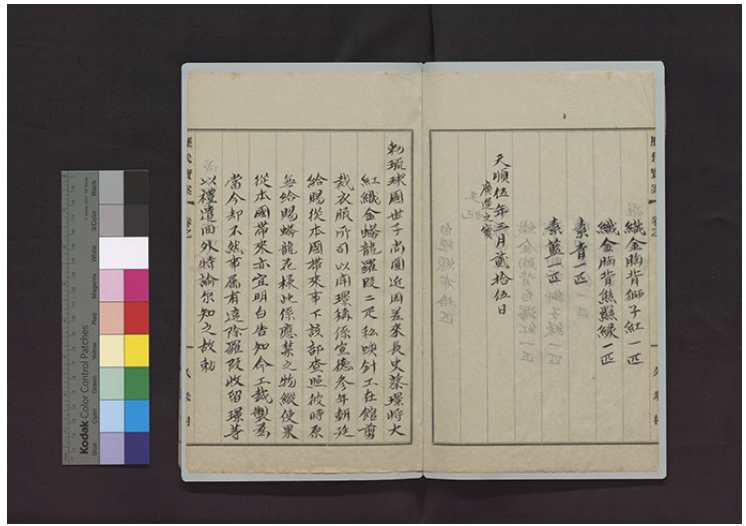 歷代寶案
織金胸背獅子紅一匹
織金胸背熊羆綠一匹
素青一匹
素藍一匹
天順伍年三月貳拾伍日
廣運之寶
勑琉球國世子尚圓近因差來長史蔡璟將大
紅織金蟒龍羅段二疋私喚針工在館剪
裁衣服所司以聞璟稱係宣德參年朝廷
給賜從本國帶來事下該部查照彼時原
無給賜蟒龍花樣此係應禁之物縱使果
從本國帶來亦宜明白告知令工裁製至
當今却不然事属有違除羅段收留璟等
以禮遣回外特諭尔知之故勑
歷代寶案
Kodak Color Control Patches
Blue
Cyan
Green
Yellow
Red
Magenta
White
3/Color
Black